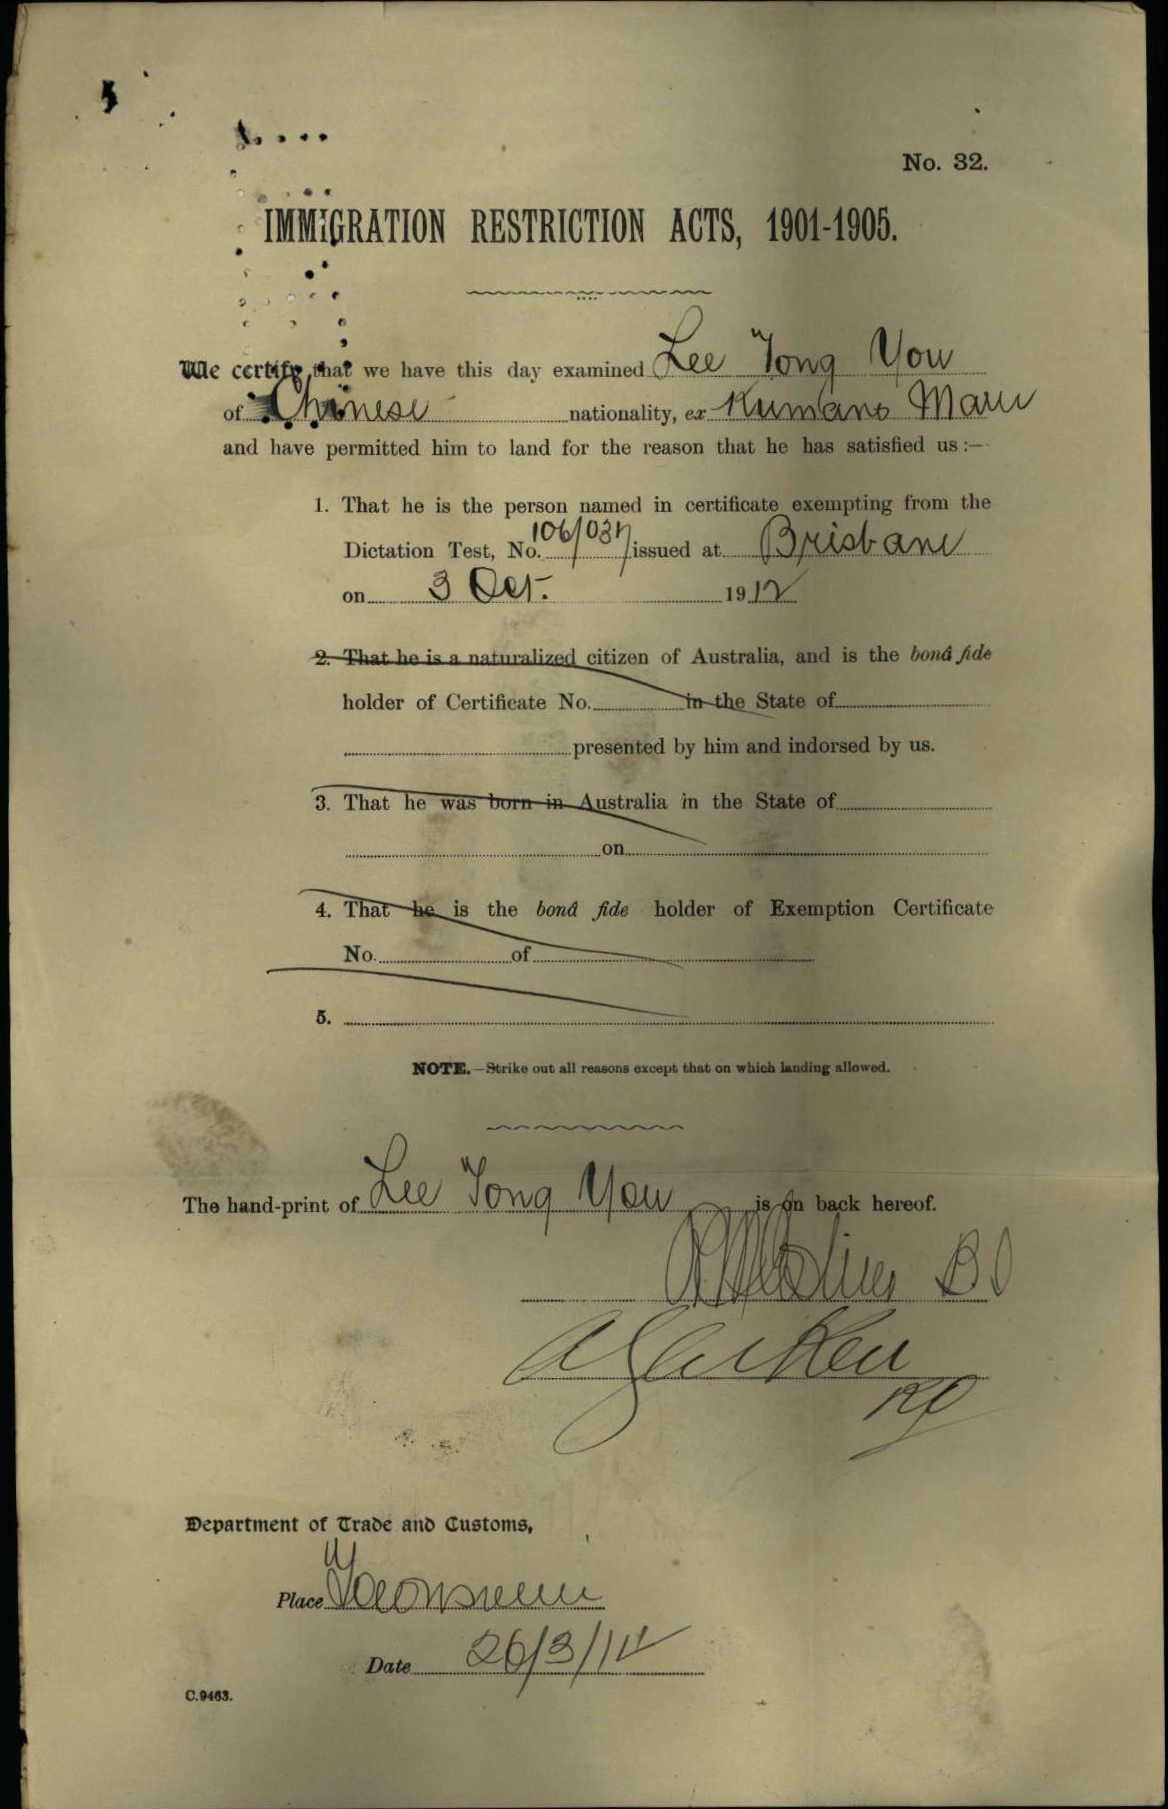 No. 32.
IMMIGRATION RESTRICTION ACTS, 1901-1905.
We certify that we have this day examined Lee Tong You
of Chinese nationality, ex Kumano Maru
and have permitted him to land for the reason that he has satisfied us :—
1. That he is the person named in certificate exempting from the
Dictation Test, No. issued at Brisbane
on 3 Oct. 1912
2. That he is a naturalized citizen of Australia, and is the bonâ fide
holder of Certificate No. in the State of
presented by him and indorsed by us.
3. That he was born in Australia in the State of
on
4. That he is the bonâ fide holder of Exemption Certificate
No. of
5.
NOTE.—Strike out all reasons except that on which landing allowed.
The hand-print of Lee Tong You is on back hereof.
Department of Trade and Customs,
Place
Date 26/3/14
C.9463.